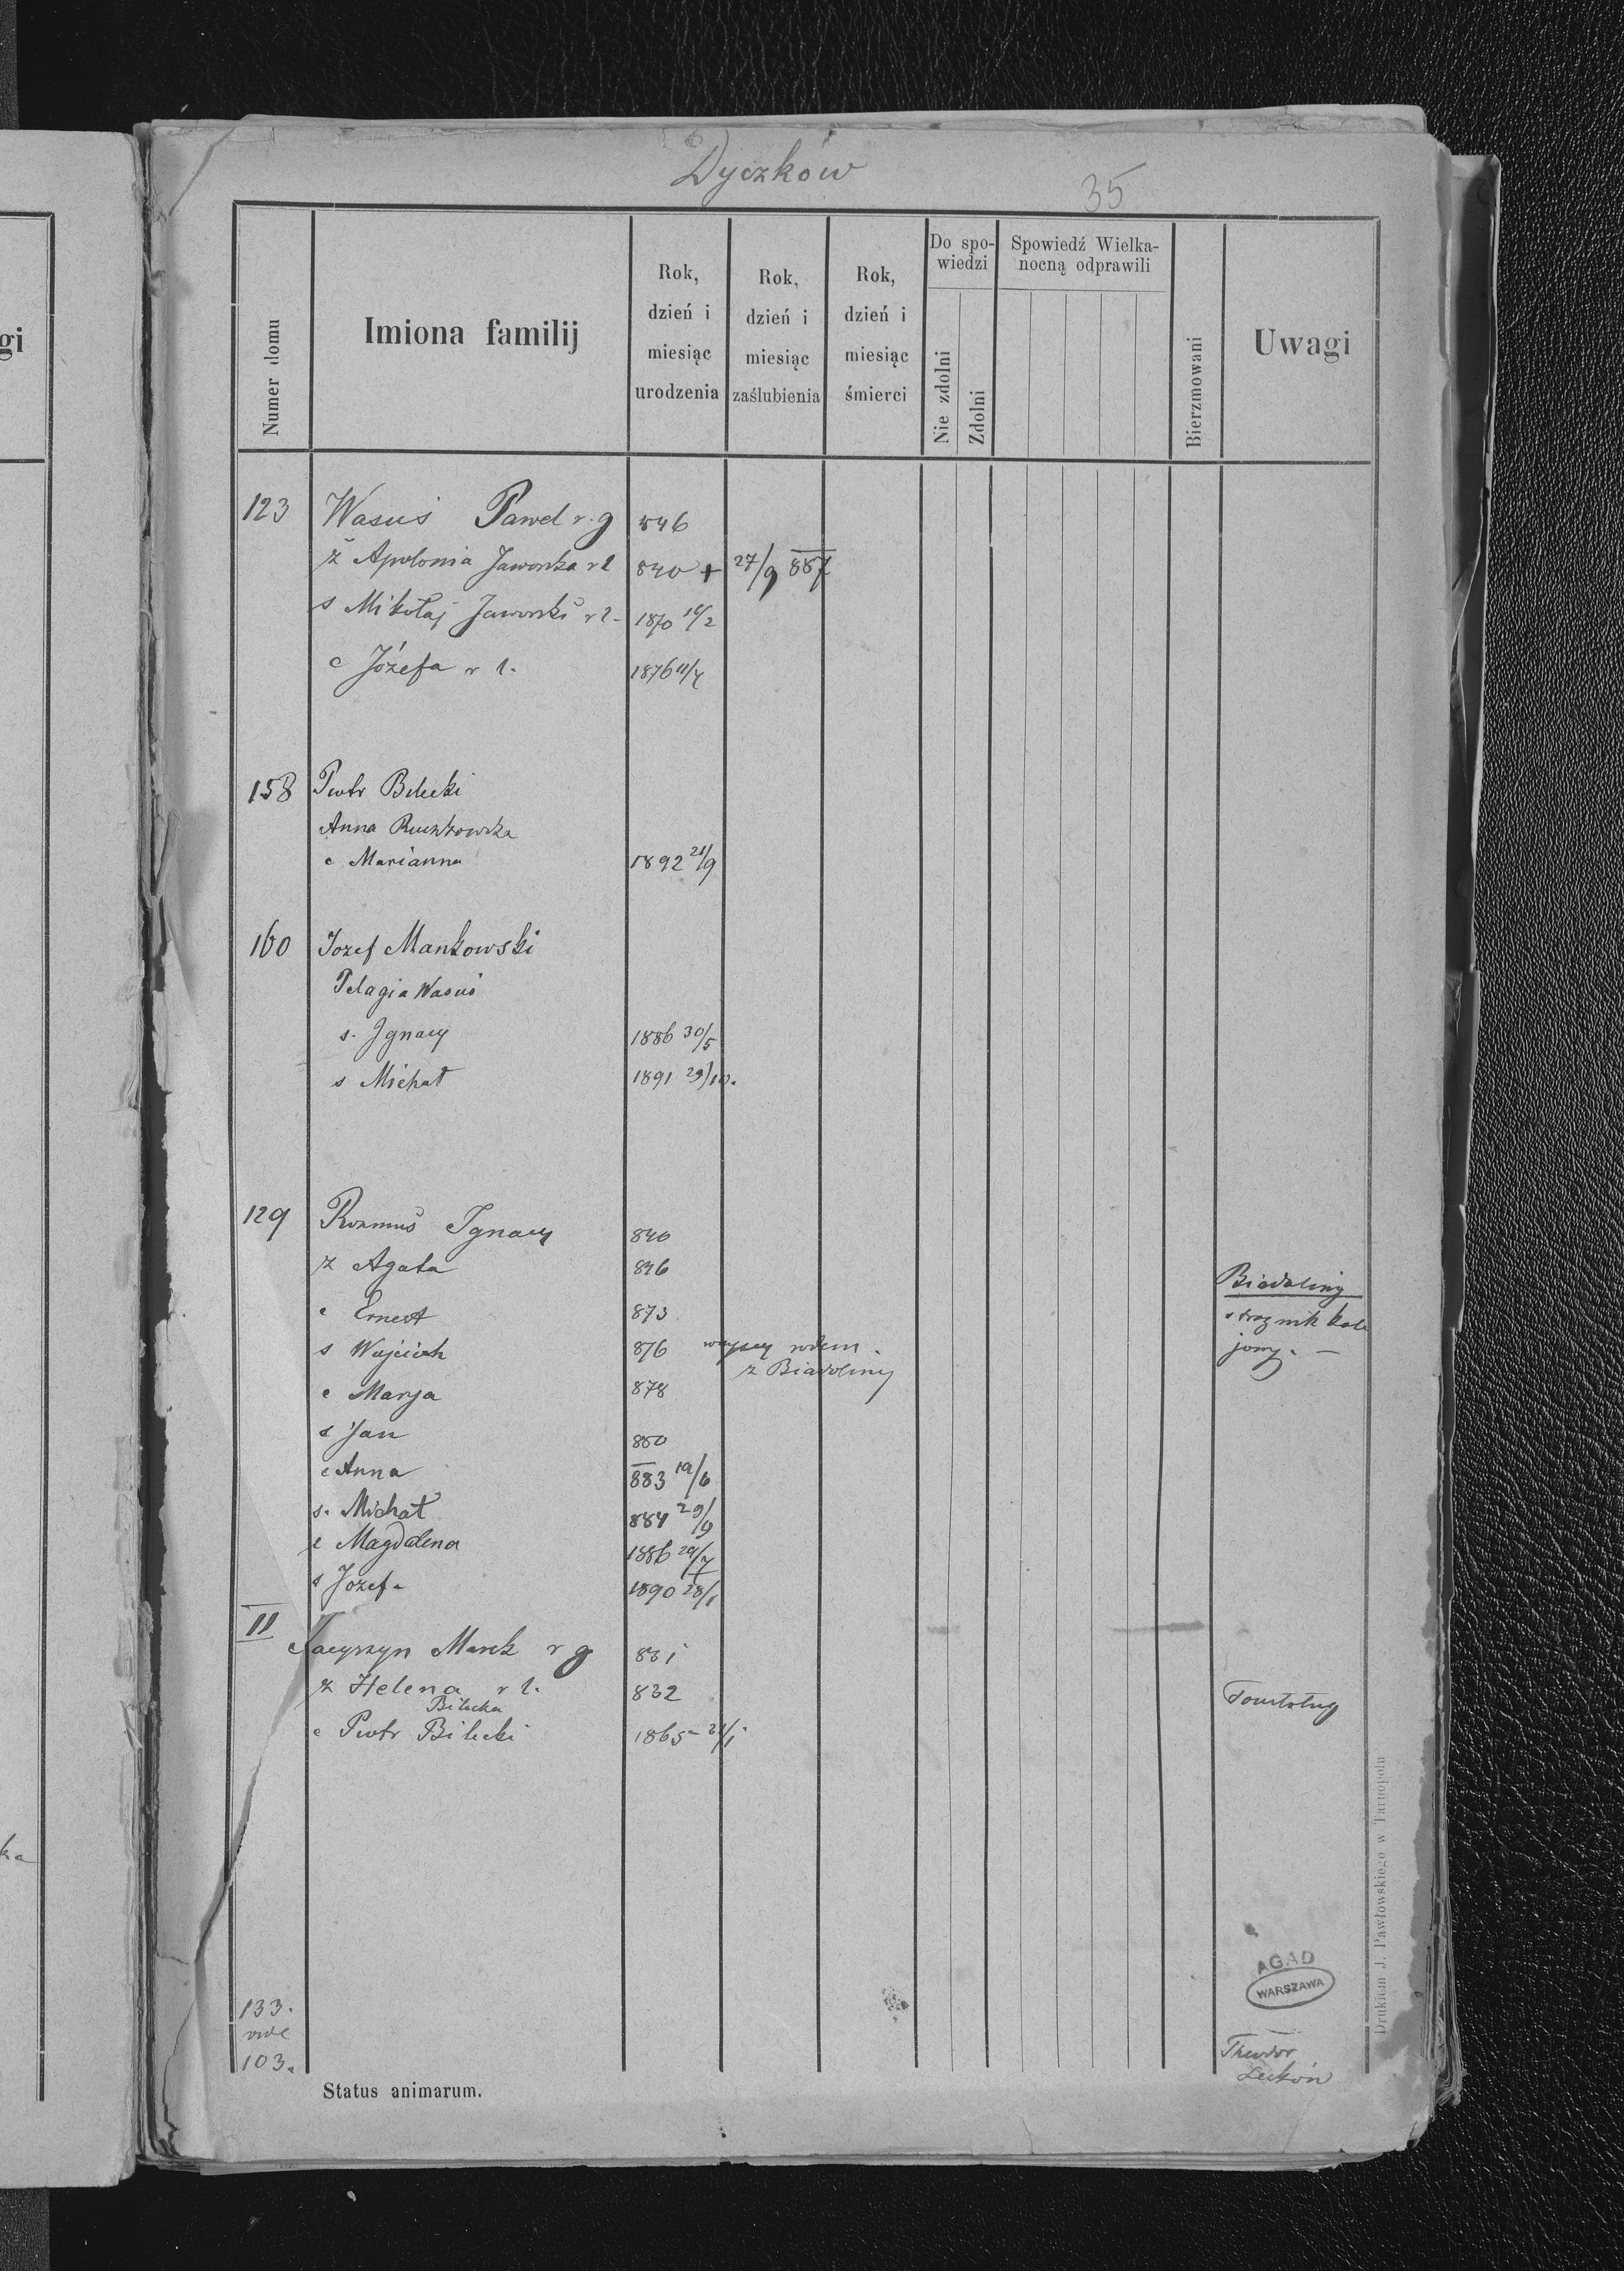 Dyczków
35
Numer domu
Imiona familij
Rok, dzień i miesiąc urodzenia
Rok, dzień i miesiąc zaślubienia
Rok, dzień i miesiąc śmierci
Do spowiedzi
Nie zdolni
Zdolni
Spowiedź Wielkanocną odprawili
Bierzmowani
Uwagi
gi
123 Wasuś Paweł r. g 846
ż Apolonia Jaworska r l 840 + 27/9 887
s Mikołaj Jaworski r l - 1870 10/2
c Józefa r l. 1876 11/4
158 Piotr Bilecki
Anna
c. Marianna 1892 21/9
160 Jozef Mankowski
Pelagia Wasuś
s. Ignacy 1886 30/5
s Michał 1891 29/10.
129 Rozmus Ignacy 840
ż Agata 846
c Ernest 873
s Wojciech 876 wszyscy rodem
z Biadoliny
c Marya 878
s Jan 880
c Anna 883 19/6
s. Michał 884 29/9
c Magdalena 1886 29/7
s Jozef 1890 28/1
Biadoliny
straznik kole
jowy. —
II
Jacyszyn Marek r g 831
ż Helena r l. 832
Bilecka
c Piotr Bilecki 1865 - 21/1
Towstoług
ka
133.
vide
103.
AGAD
WARSZAWA
Theodor
Status animarum.
Drukiem J. Pawłowskiego w Tarnopolu